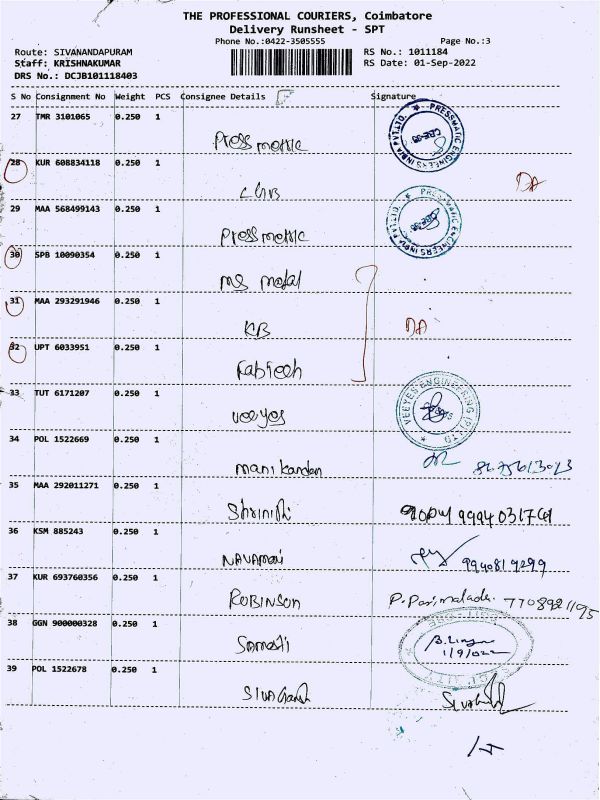 THE PROFESSIONAL COURIERS, Coimbatore
Delivery Runsheet - SPT
Phone No.:0422-3505555 Page No.:3
Route: SIVANANDAPURAM RS No.: 1011184
Staff: KRISHNAKUMAR RS Date: 01-Sep-2022
DRS No.: DCJB101118403
S No Consignment No Weight PCS Consignee Details Signature
27 TMR 3101065 0.250 1
Pressmatic
PRESSMATIC ENGINEERS INDIA PVT.LTD.
28 KUR 608834118 0.250 1
DA
29 MAA 568499143 0.250 1
Pressmatic
PRESSMATIC ENGINEERS INDIA PVT.LTD.
30 SPB 10090354 0.250 1
MS metal
31 MAA 293291946 0.250 1
KB DA
32 UPT 6033951 0.250 1
Fabtech
33 TUT 6171207 0.250 1
veeyes
VEEYES ENGINEERING (P) LTD
34 POL 1522669 0.250 1
manikandan
35 MAA 292011271 0.250 1
Shrinidhi
36 KSM 885243 0.250 1
NAVAMANI 9940819299
37 KUR 693760356 0.250 1
ROBINSON P. Parimaladevi 7708921195
38 GGN 900000328 0.250 1
1/9/2022
39 POL 1522678 0.250 1